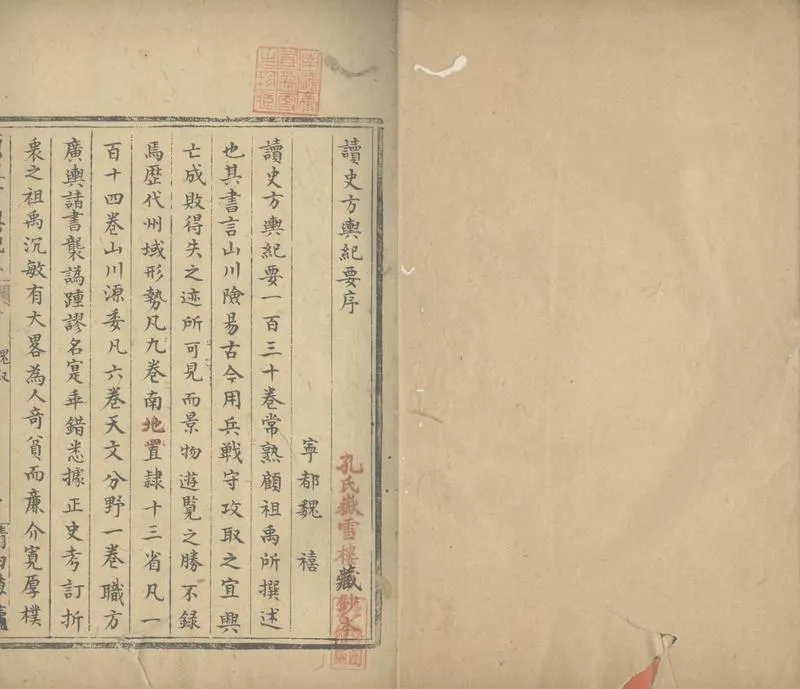 讀史方輿紀要序
孔氏嶽雪樓藏鈔本
寧都魏禧
讀史方輿紀要一百三十卷常熟顧祖禹所撰述
也其書言山川險易古今用兵戰守攻取之宜興
亡成敗得失之迹所可見而景物遊覽之勝不錄
焉歷代州域形勢凡九卷南地置隸十三省凡一
百十四卷山川源委凡六卷天文分野一卷職方
廣輿諸書襲譌踵謬名寔乖錯悉據正史考訂折
衷之祖禹沉敏有大畧為人奇貧而廉介寬厚樸